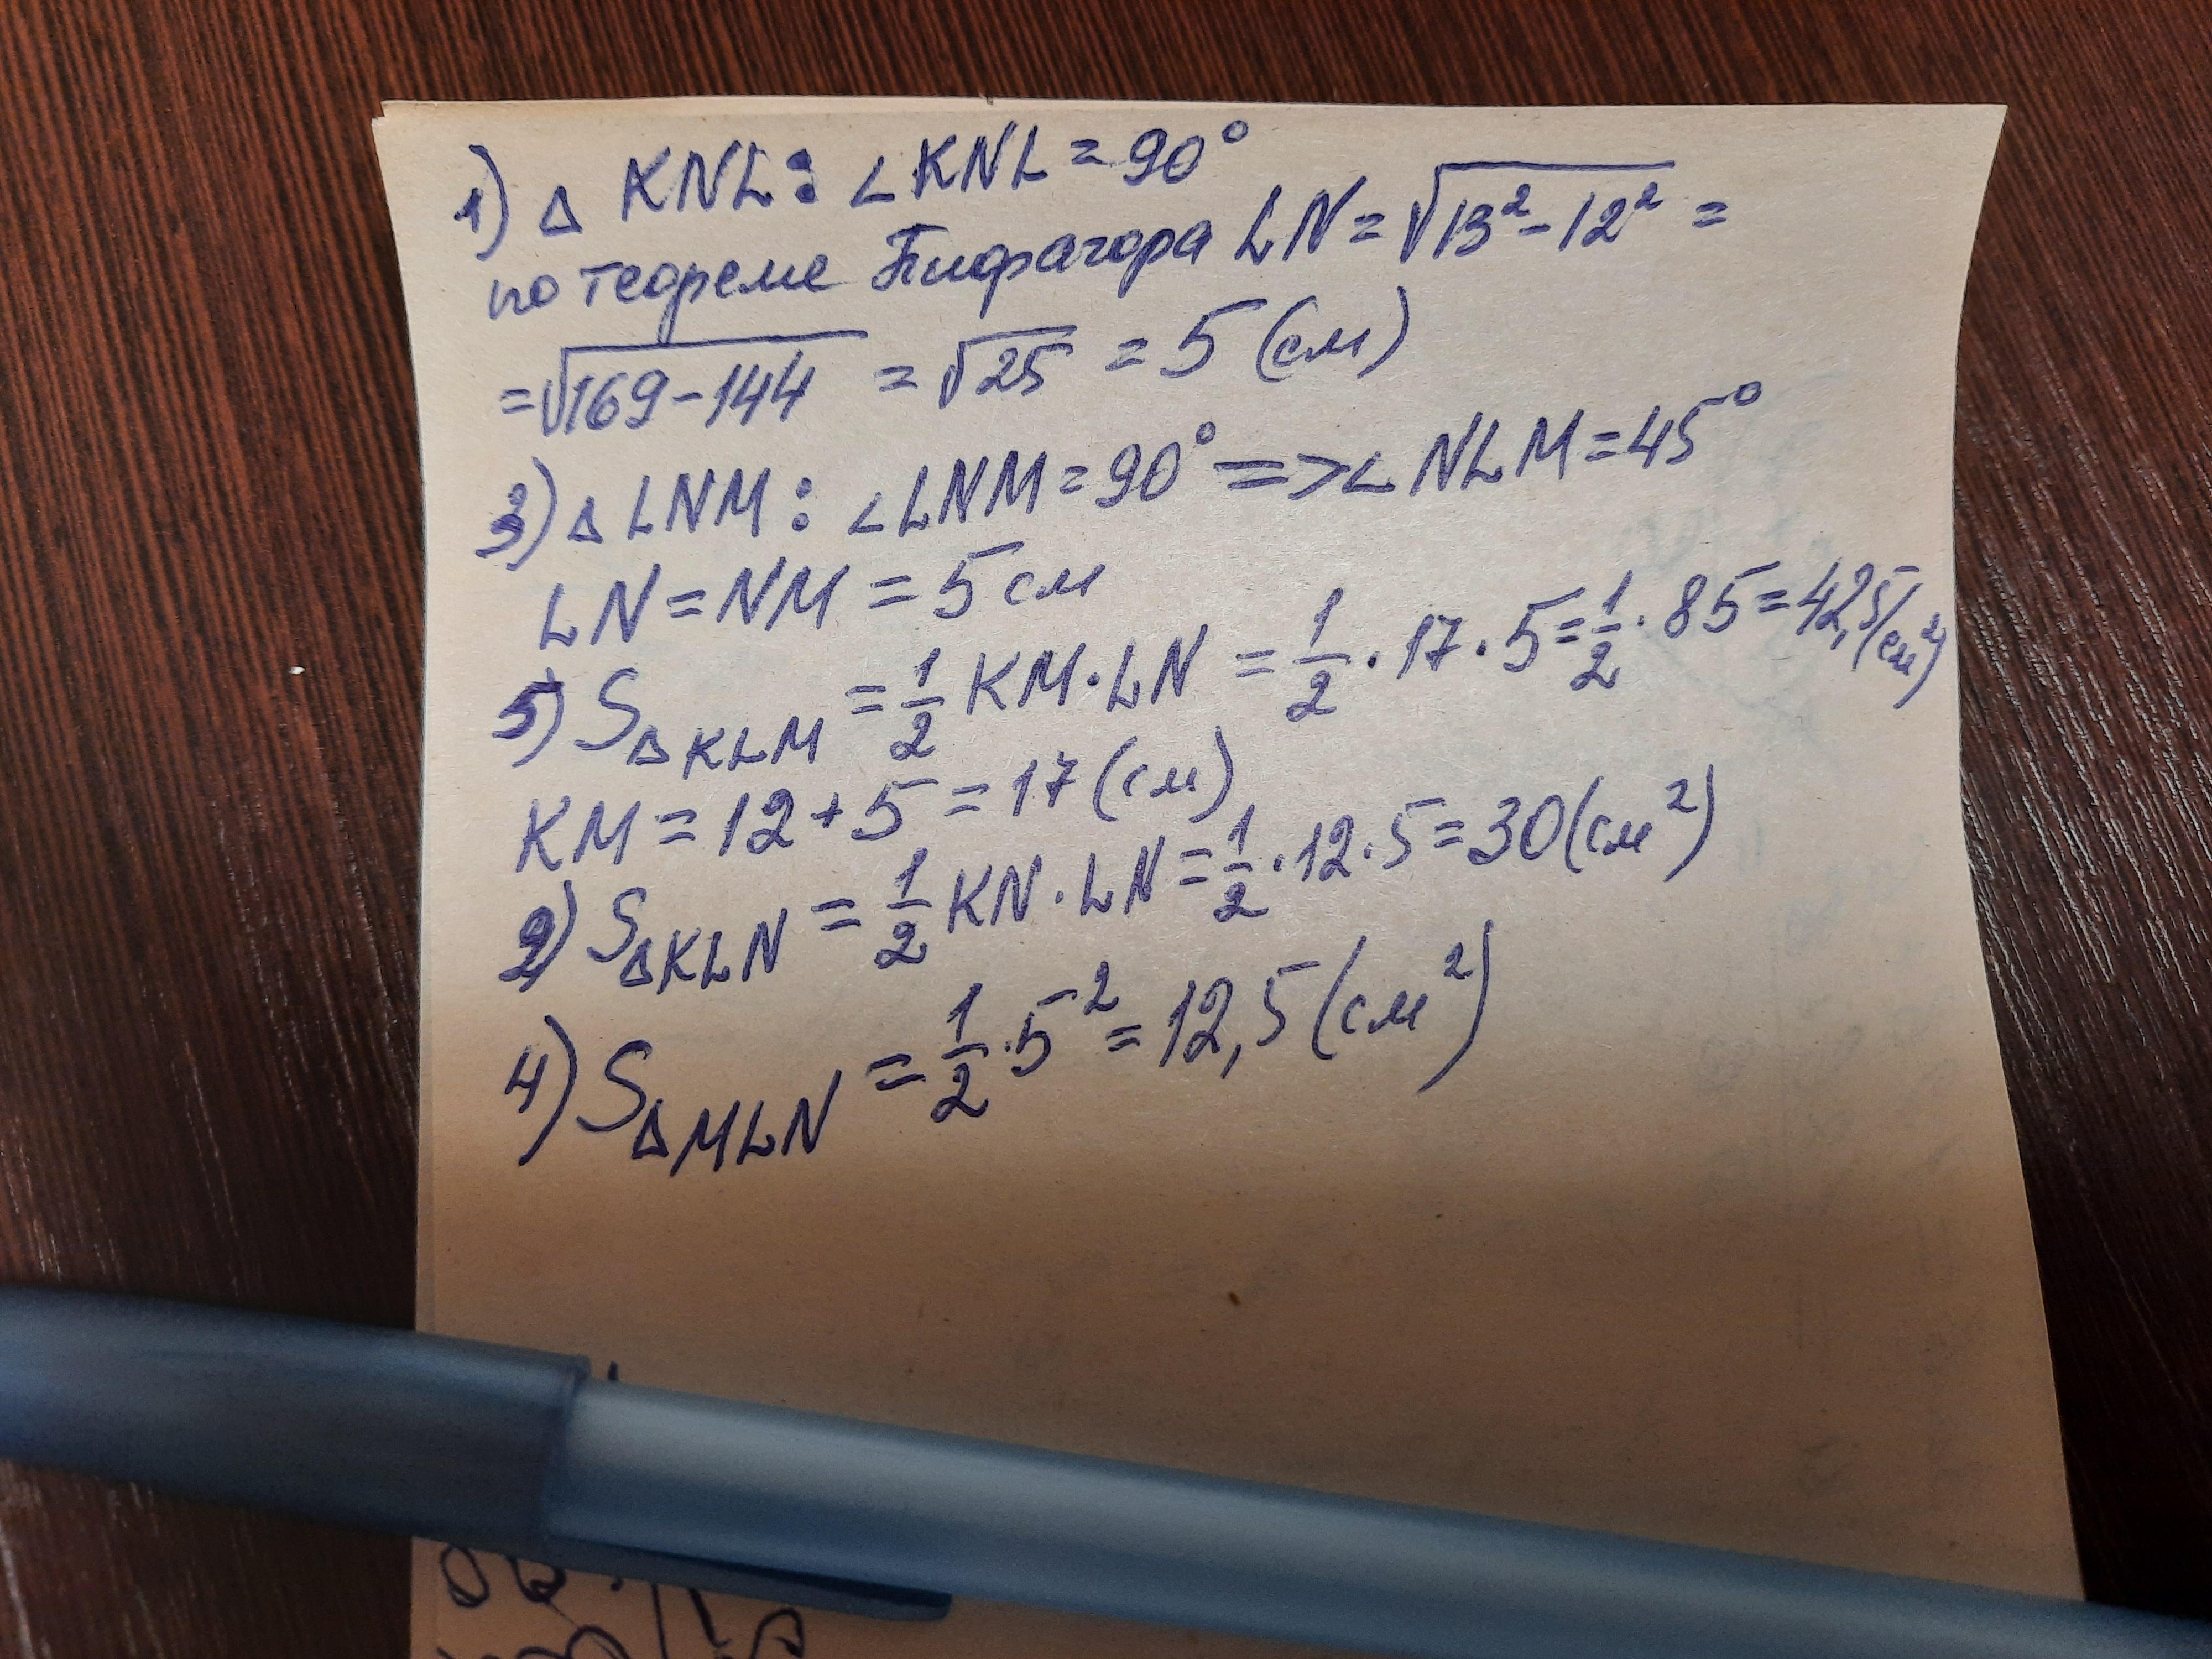 1) Δ KNL: ∠KNL = 90°
по теореме Пифагора LN = √13² - 12² =
= √169 - 144 = √25 = 5 (см)
3) Δ LNM: ∠LNM = 90° => ∠NLM = 45°
LN = NM = 5 см
5) S ΔKLM = 1/2 KM · LN = 1/2 · 17 · 5 = 1/2 · 85 = 42,5 (см²)
KM = 12 + 5 = 17 (см)
2) S ΔKLN = 1/2 KN · LN = 1/2 · 12 · 5 = 30 (см²)
4) S ΔMLN = 1/2 · 5² = 12,5 (см²)